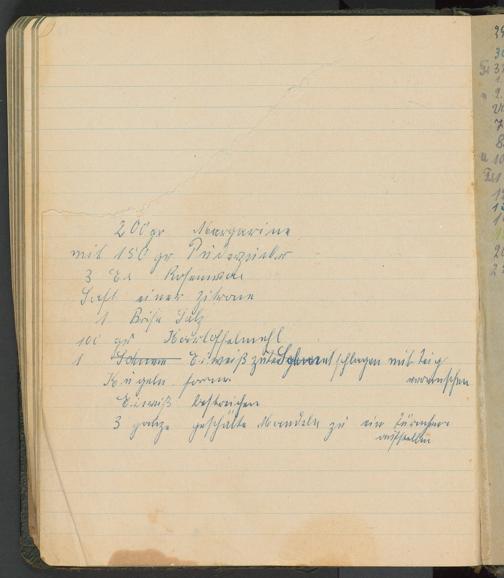 200 gr Margarine
mit 150 gr Puderzucker
3 EL Rosenwasser
Saft einer Zitrone
1 Brise Salz
100 gr Kartoffelmehl
1 Eiweiß zu Schnee schlagen mit Teig
vermischen
Kugeln formen
Eiweiß bestreichen
3 ganze geschälte Mandeln zu ein Türmchen
aufstellen